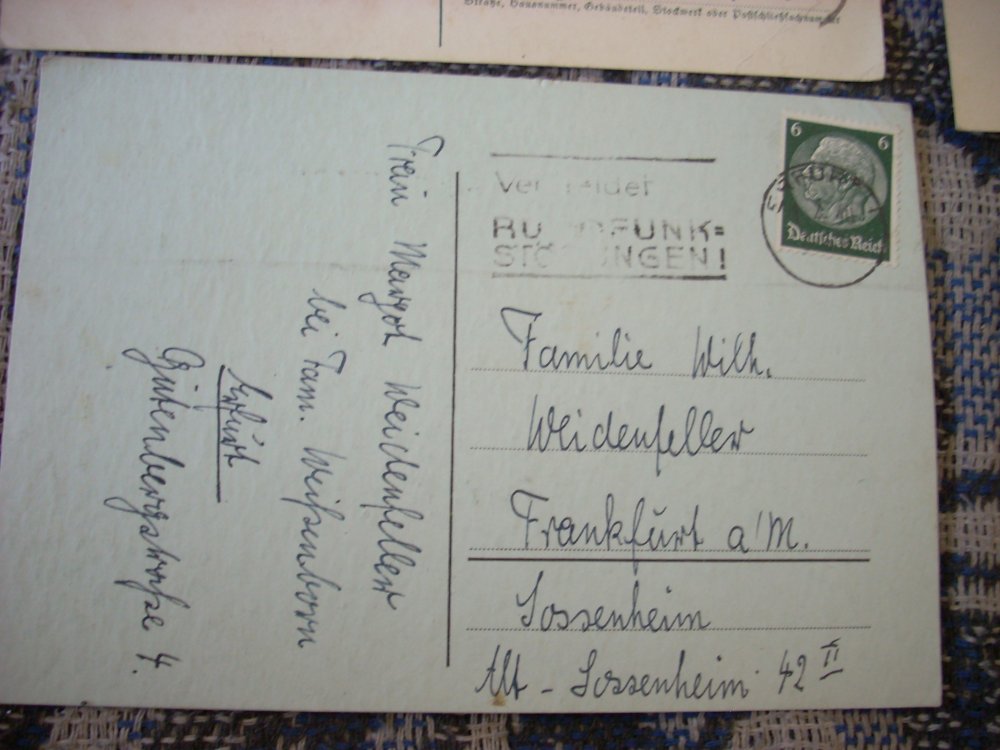 Straße, Hausnummer, Gebäudeteil, Stockwerk oder Postschließfachnummer
Frau Margot Weidenfeller
bei Fam. Weißenborn
Erfurt
Gutenbergstraße 4.
RUNDFUNK=
STÖRUNGEN!
6 6
Deutsches Reich
Familie Wilh.
Weidenfeller
Frankfurt a/M.
Sossenheim
Alt - Sossenheim 42 II